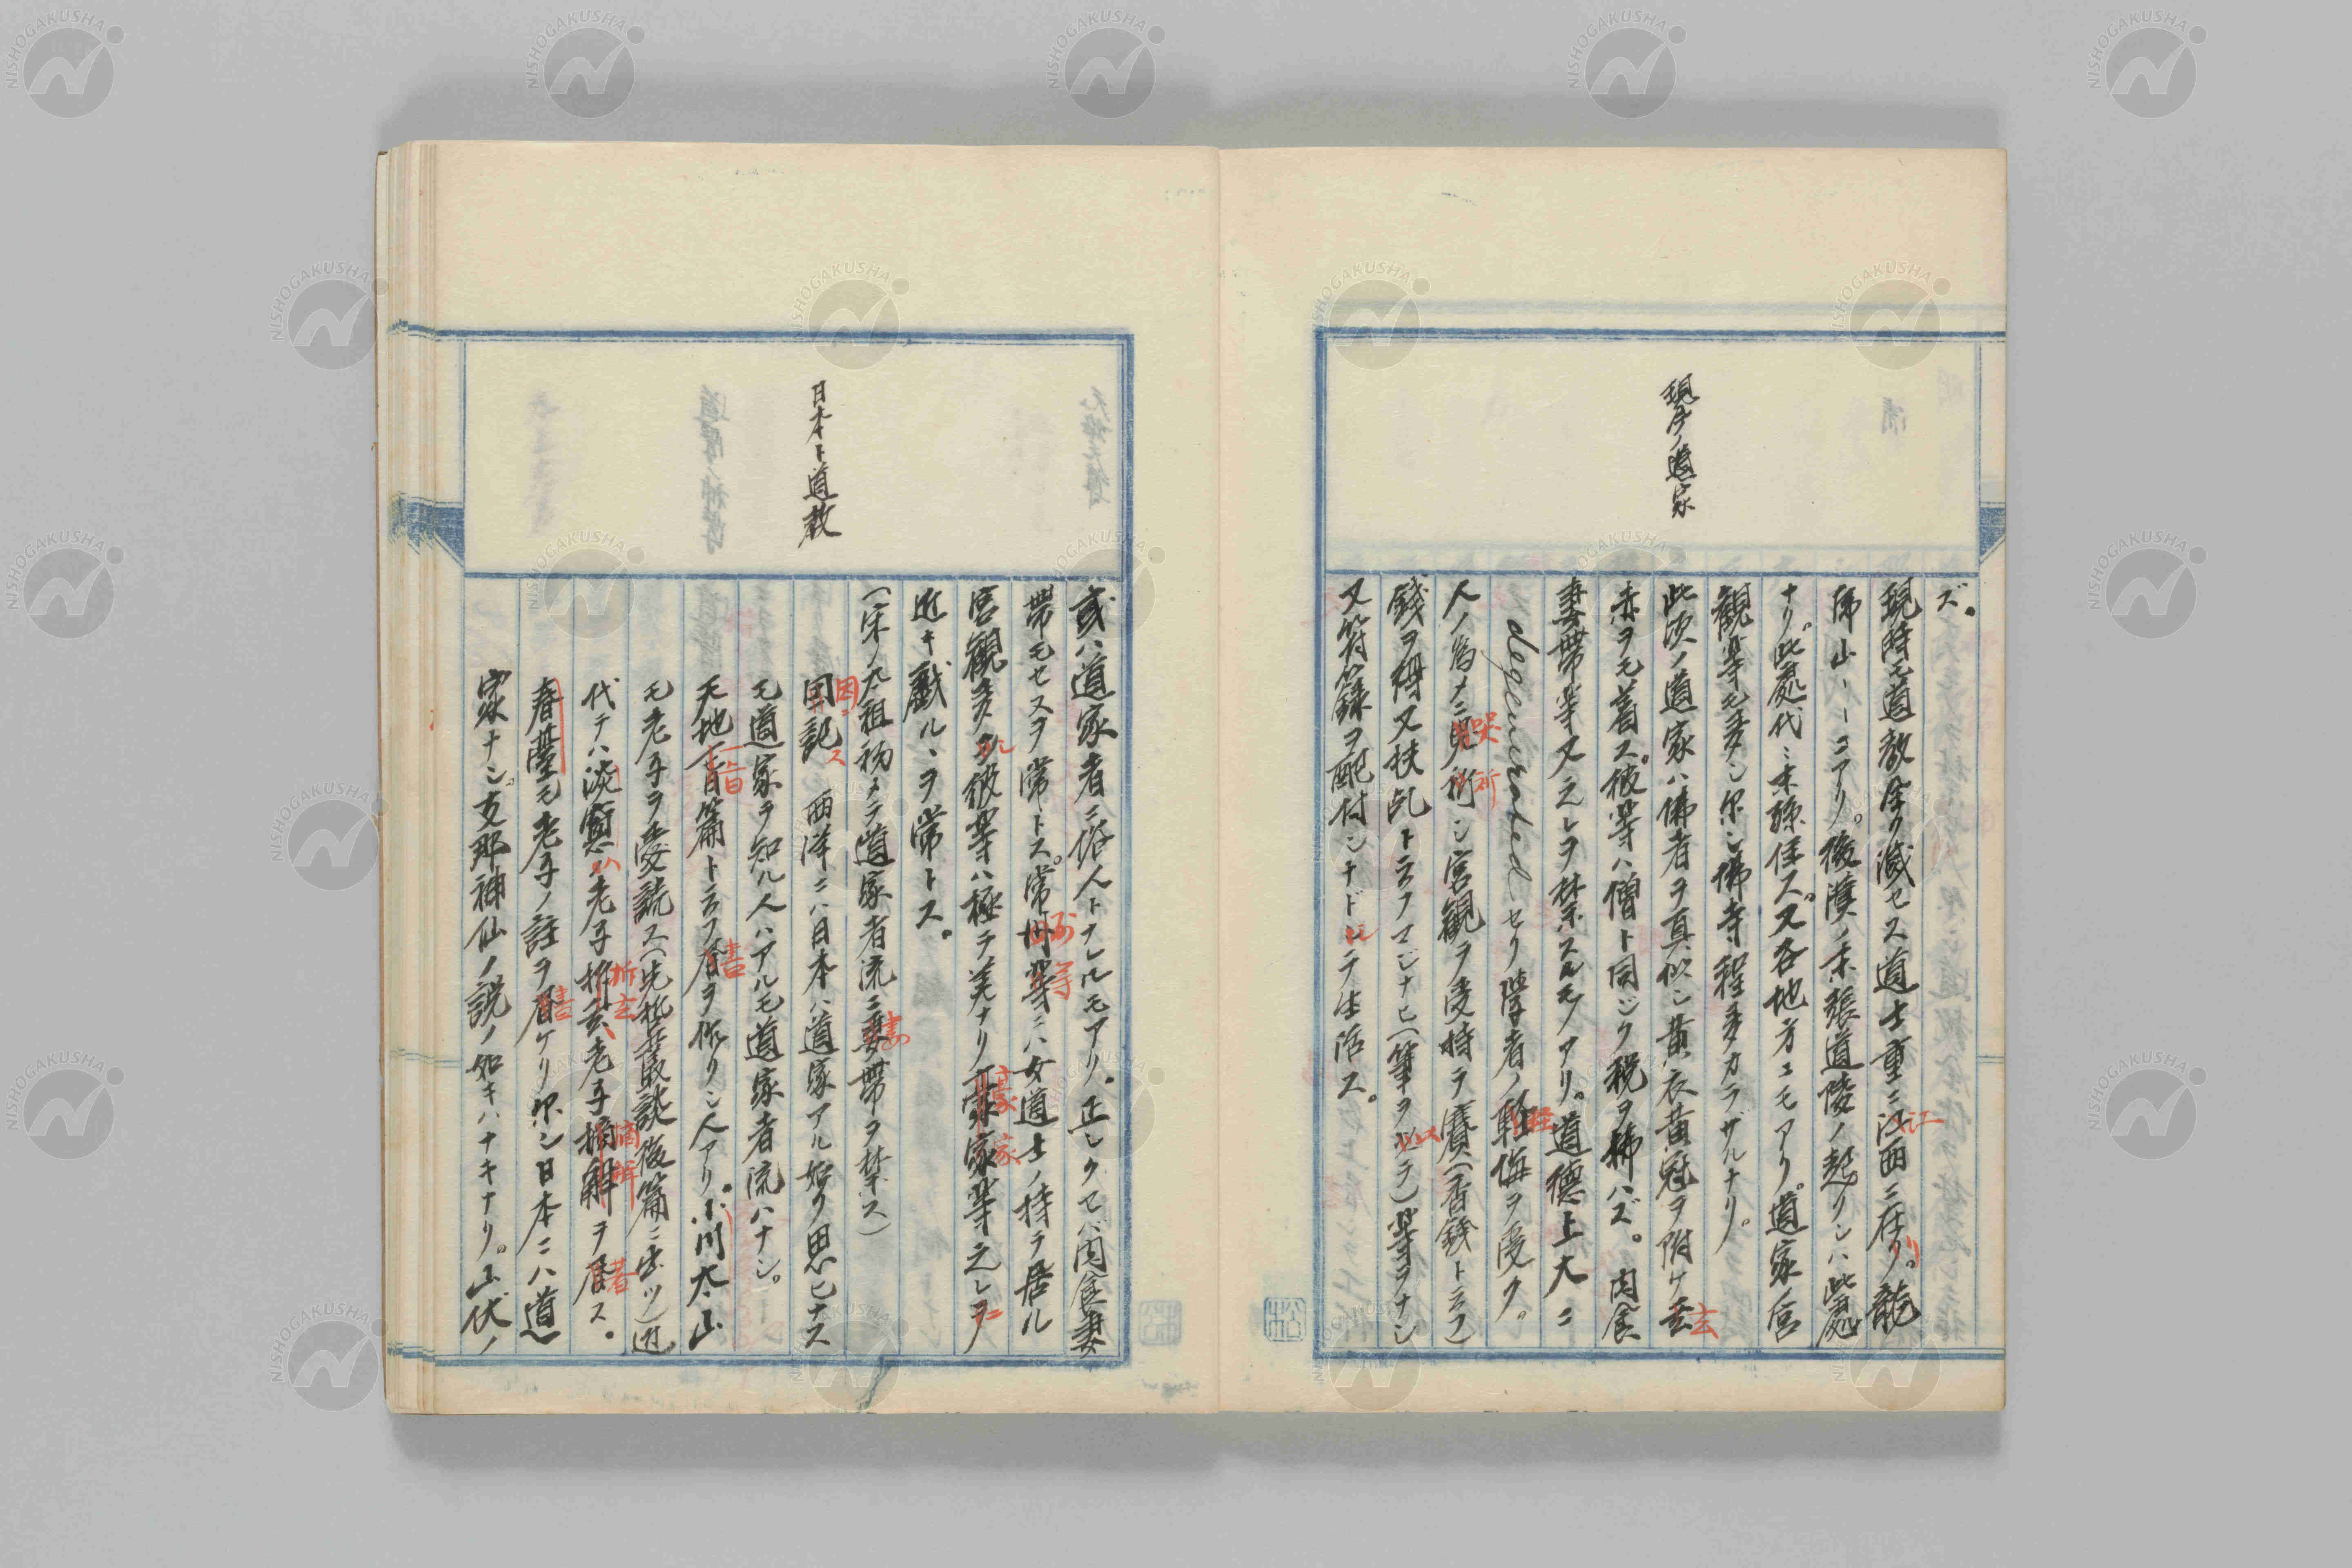 現今ノ道家
ズ。
現時モ道教全ク滅セス道士重ニ江西ニ在リ。龍
乕山ーーコアリ。後漢ノ末張道陵ノ起リシハ此処
ナリ。此処代ミ末孫住ス。又各地方ニモアリ。道家ノ宮
観等モ多シ尓シ佛寺程多カラザルナリ。
此次ノ道家ハ佛者ヲ真似シ黄衣黄冠ヲ附ケ玄
赤ヲモ着ス。彼等ハ僧ト同ジク税ヲ拂ハズ。肉食
妻帯等又之レヲ禁スルモノアリ。道徳上大ニ
degenerated セリ学者ノ軽侮ヲ受ク。
人ノ為メニ哭祈シ宮観ヲ受持テ賽(香銭ト云フ)
銭ヲ得又扶乩ト云フマジナヒ(筆ヲ以テ)等ヲナシ
又符籙ヲ配付シナドシテ生活ス。
日本ト道教
或ハ道家者ニ俗人トナレルモアリ。正シクセバ肉食妻
帯モセスヲ常トス。常州等ニハ女道士ノ持テ居ル
宮観多シ彼等ハ極テ美ナリ豪家等之レヲ
近キ戯ルヽヲ常トス。
(宋ノ太祖初メテ道家者流ニ妻帯ヲ禁ス)
因ニ記ス 西洋ニハ日本ハ道家アル如ク思ヒナス
モ道家ヲ知ル人ハアルモ道家者流ハナシ。
天地一百篇ト云フ書ヲ作リシ人アリ。小川太山
モ老子ヲ愛読ス(先哲叢談後篇ニ出ツ)近
代テハ淡窓ハ老子折玄老子摘解ヲ著ス。
春台モ老子ノ註ヲ書ケリ尓シ日本ニハ道
家ナシ。支那神仙ノ説ノ如キハナキナリ。山伏ノ
NISHOGAKUSHA